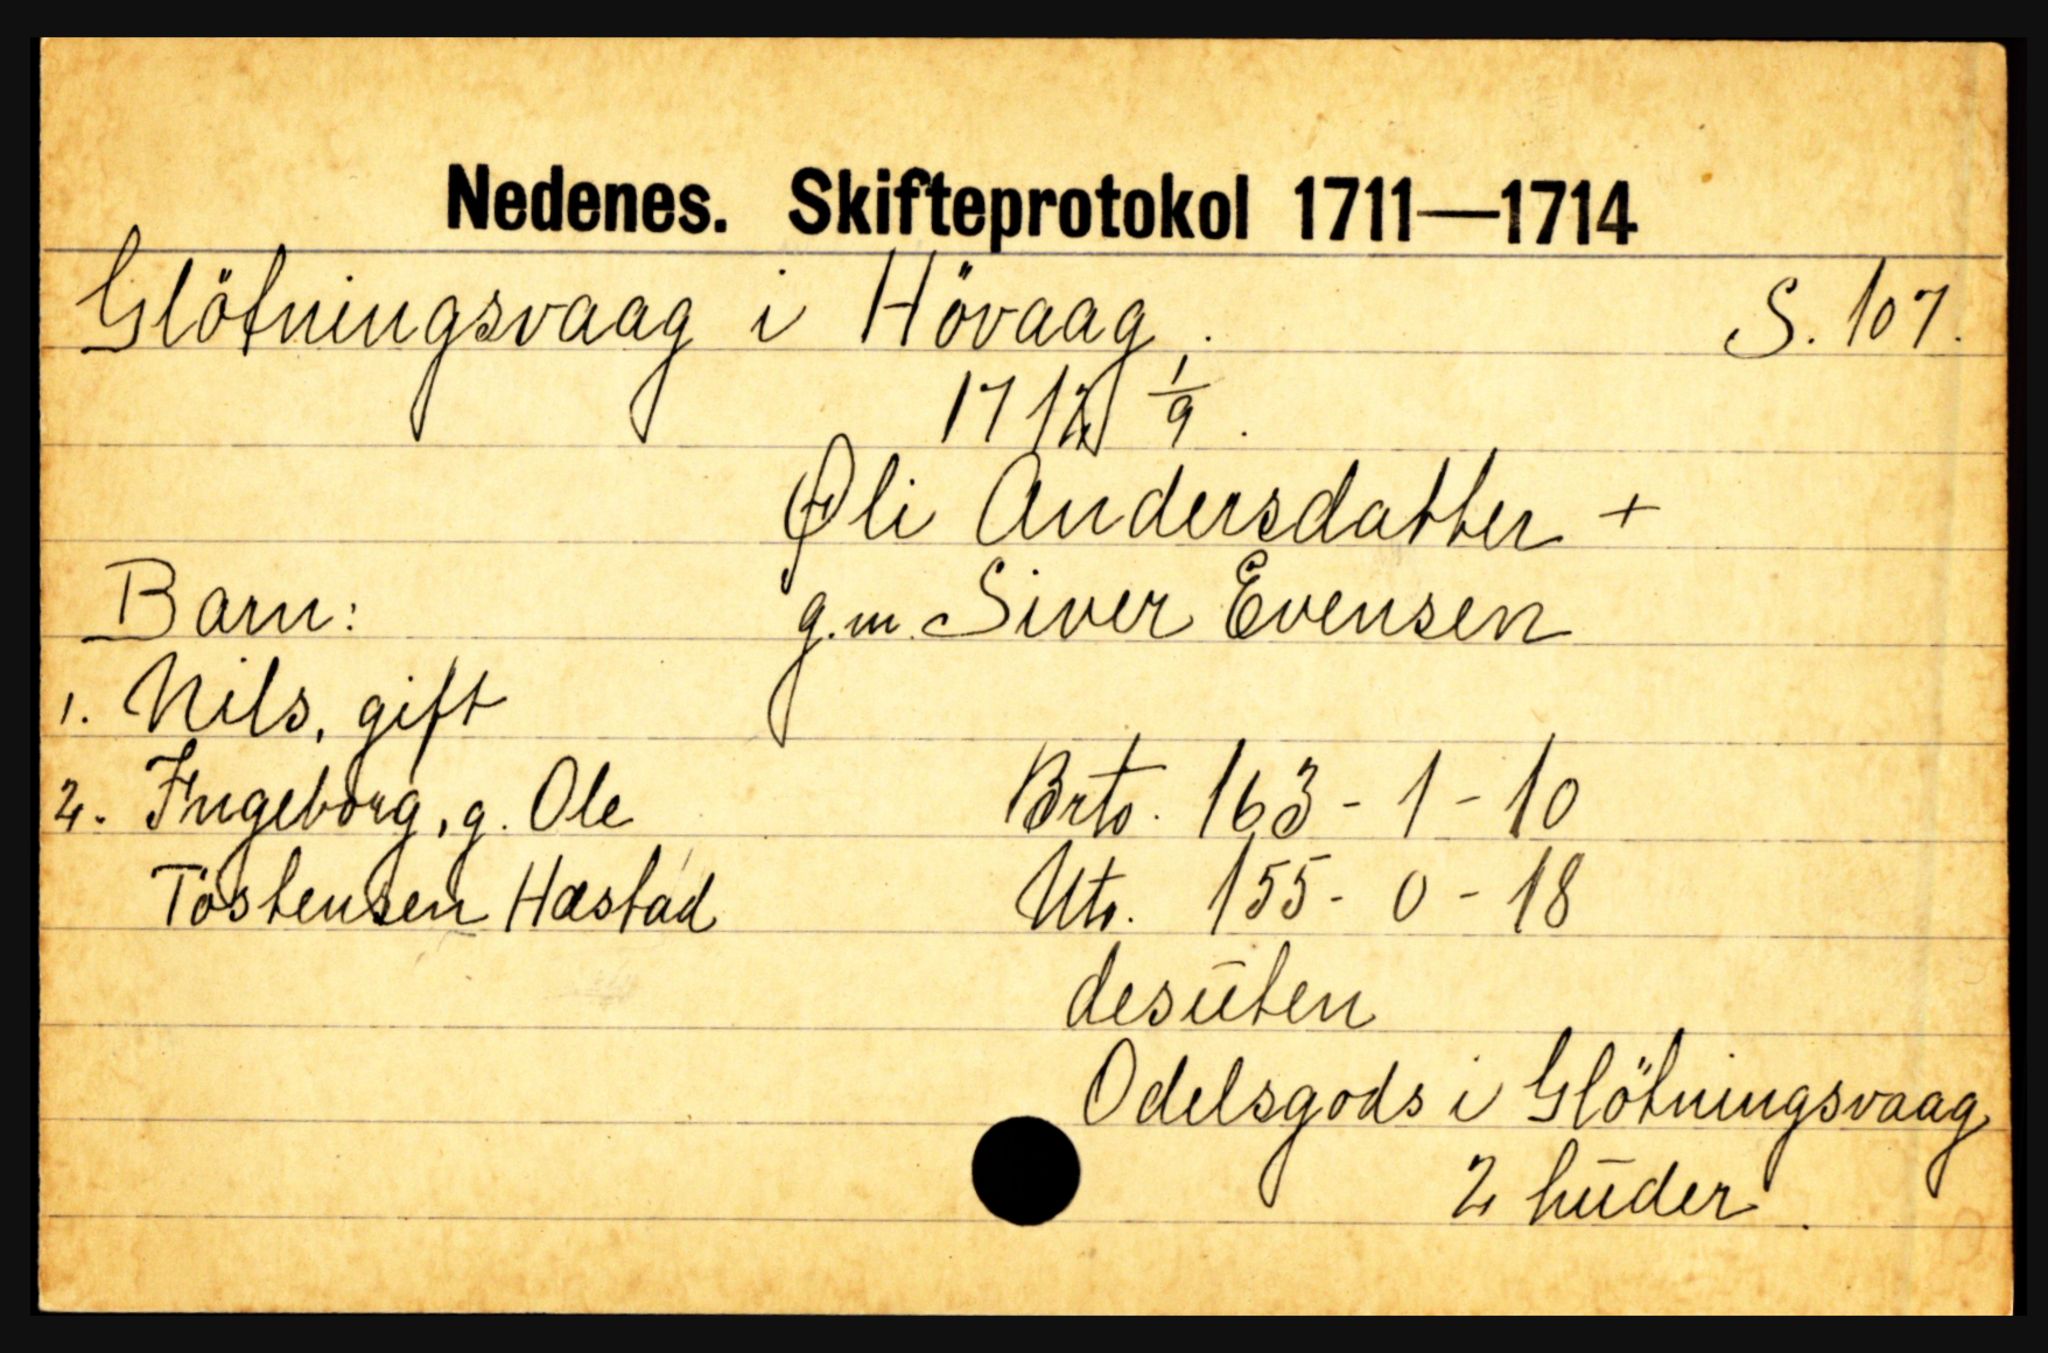 Nedenes. Skifteprotokol 1711—1714
Glötningsvaag i Hövaag. S. 107.
1712 1/9.
Øli Andersdatter +
Barn: g.m. Siver Evensen
1. Nils, gift
2. Ingeborg, g. Ole Brto. 163 - 1 - 10
Tostensen Hæstad Nto. 155 - 0 - 18
desuten
Odelsgods i Glötningsvaag
2 huder.